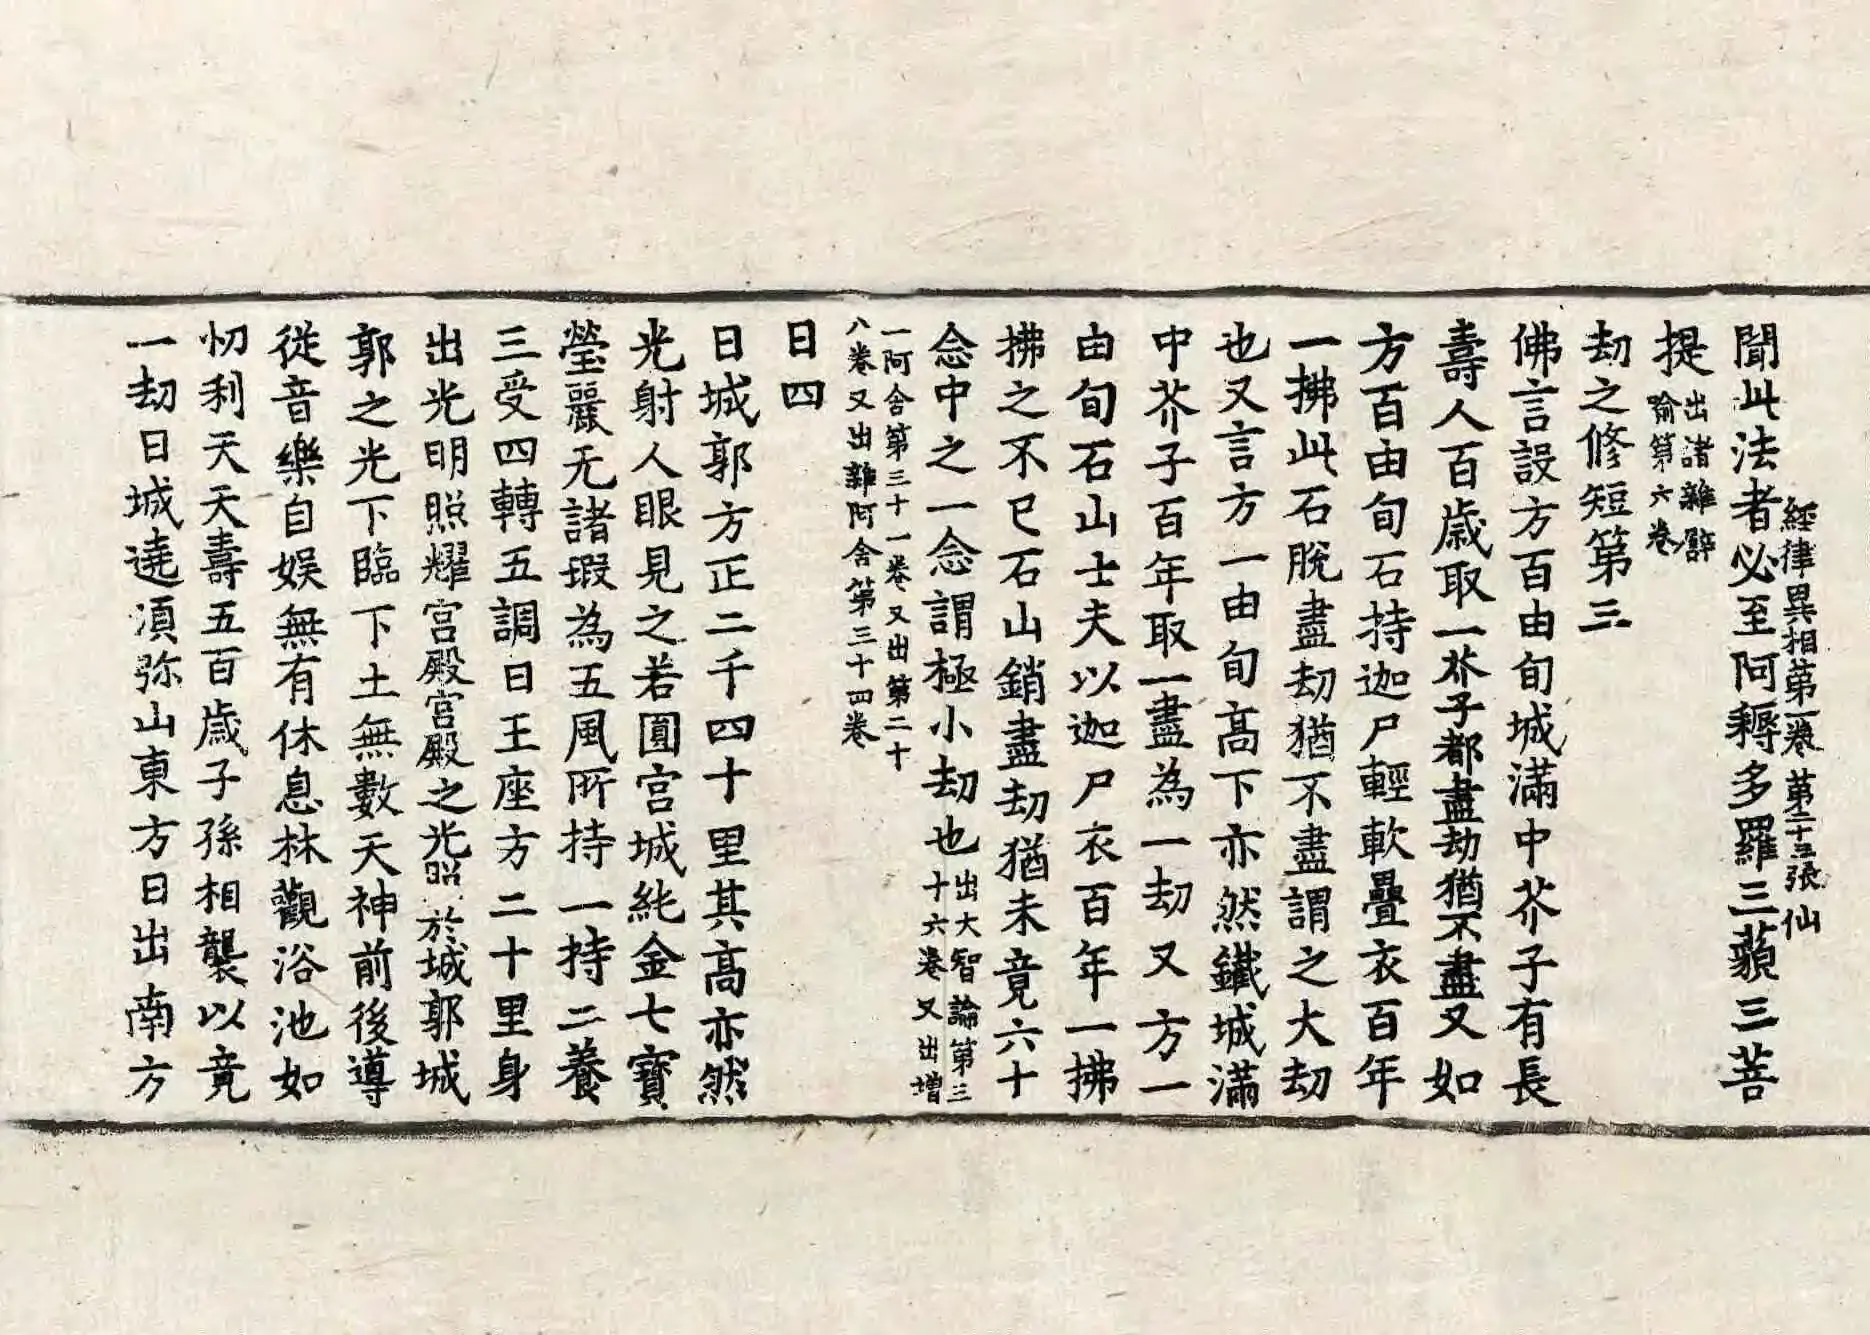 經律異相第一卷 第二十三張 仙
聞此法者必至阿耨多羅三藐三菩
提 出諸雜譬
喻第六卷
劫之修短第三
佛言設方百由旬城滿中芥子有長
壽人百歲取一芥子都盡劫猶不盡又如
方百由旬石持迦尸輕軟疊衣百年
一拂此石脫盡劫猶不盡謂之大劫
也又言方一由旬高下亦然鐵城滿
中芥子百年取一盡為一劫又方一
由旬石山士夫以迦尸衣百年一拂
拂之不已石山銷盡劫猶未竟六十
念中之一念謂極小劫也 出大智論第三
十六卷又出增
一阿含第三十一卷又出第二十
八卷又出雜阿含第三十四卷
日四
日城郭方正二千四十里其高亦然
光射人眼見之若圓宮城純金七寶
瑩麗无諸瑕為五風所持一持二養
三受四轉五調日王座方二十里身
出光明照耀宮殿宮殿之光照於城郭城
郭之光下臨下土無數天神前後導
從音樂自娛無有休息林觀浴池如
忉利天天壽五百歲子孫相襲以竟
一劫日城遶須弥山東方日出南方